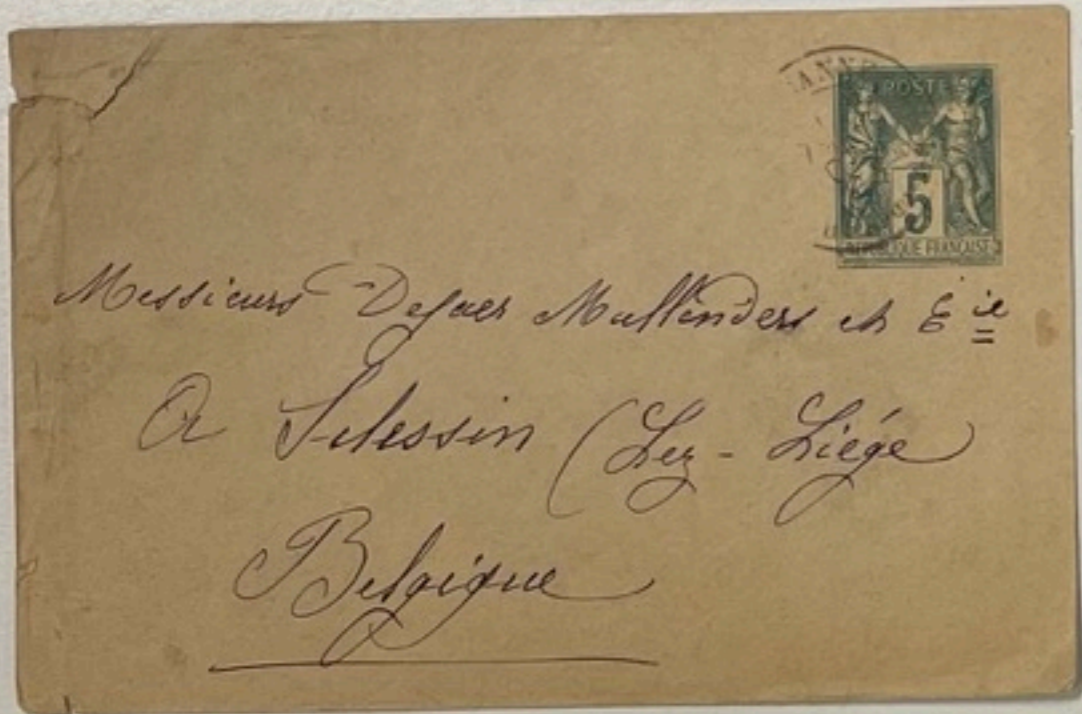 POSTE
5
REPUBLIQUE FRANÇAISE
Messieurs Mullenders et Cie
A Sclessin (Lez-Liége
Belgique